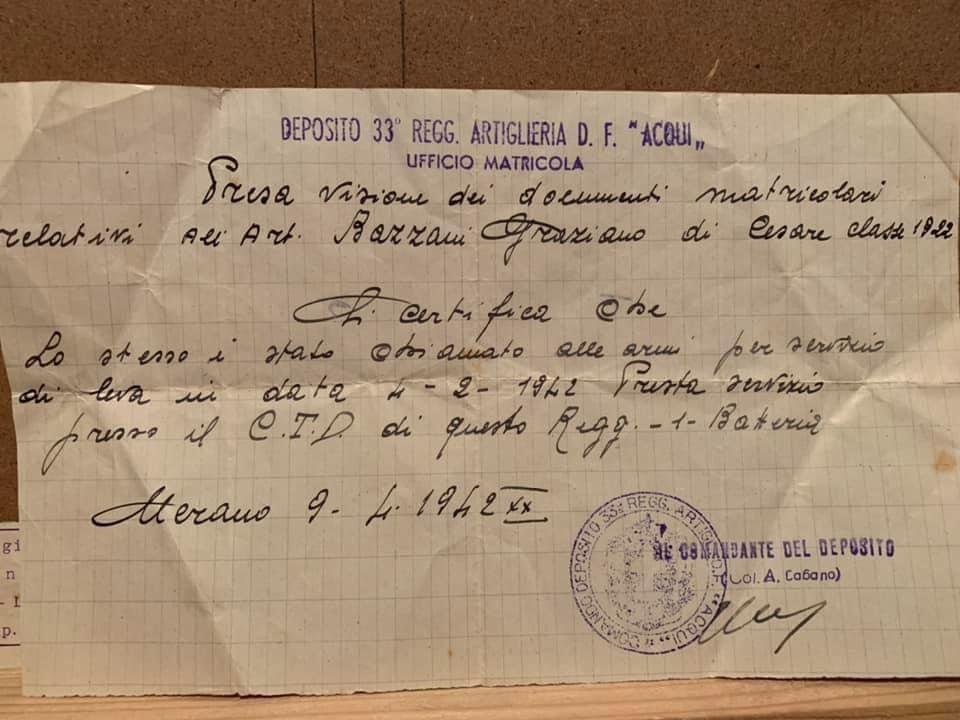 DEPOSITO 33° REGG. ARTIGLIERIA D. F. "ACQUI„
UFFICIO MATRICOLA
Presa visione dei documenti matricolari
relativi All Art. Bazzani Graziano di Cesare classe 1922
Si certifica che
Lo stesso è stato chiamato alle armi per servizio
di leva in data 4-2-1942 Presta servizio
presso il C.T.D. di questo Regg. - 1- Batteria
Merano 9-4.1942 XX
IL COMANDANTE DEL DEPOSITO
(Col. A. Cabano)
COMANDO DEPOSITO 33° REGG. ARTIGL. D.F. "ACQUI"
gi
n
p.